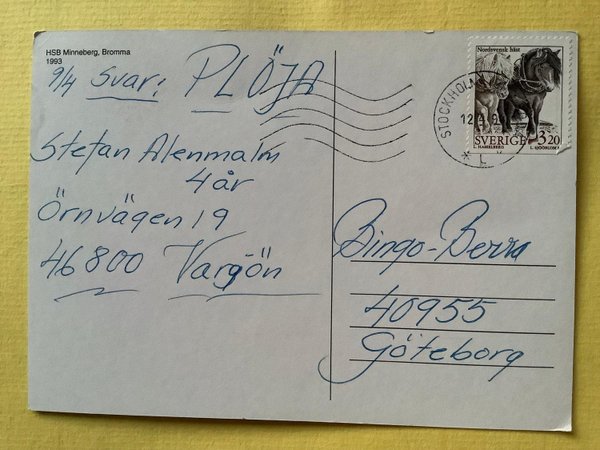 HSB Minneberg, Bromma
1993
9/4 Svar: PLÖJA
Stefan Alenmalm
4 år
Örnvägen 19
46800 Vargön
Nordsvensk häst
STOCKHOLM
SVERIGE 3.20
L. SJÖÖBLOM
Bingo-Berra
40955
Göteborg